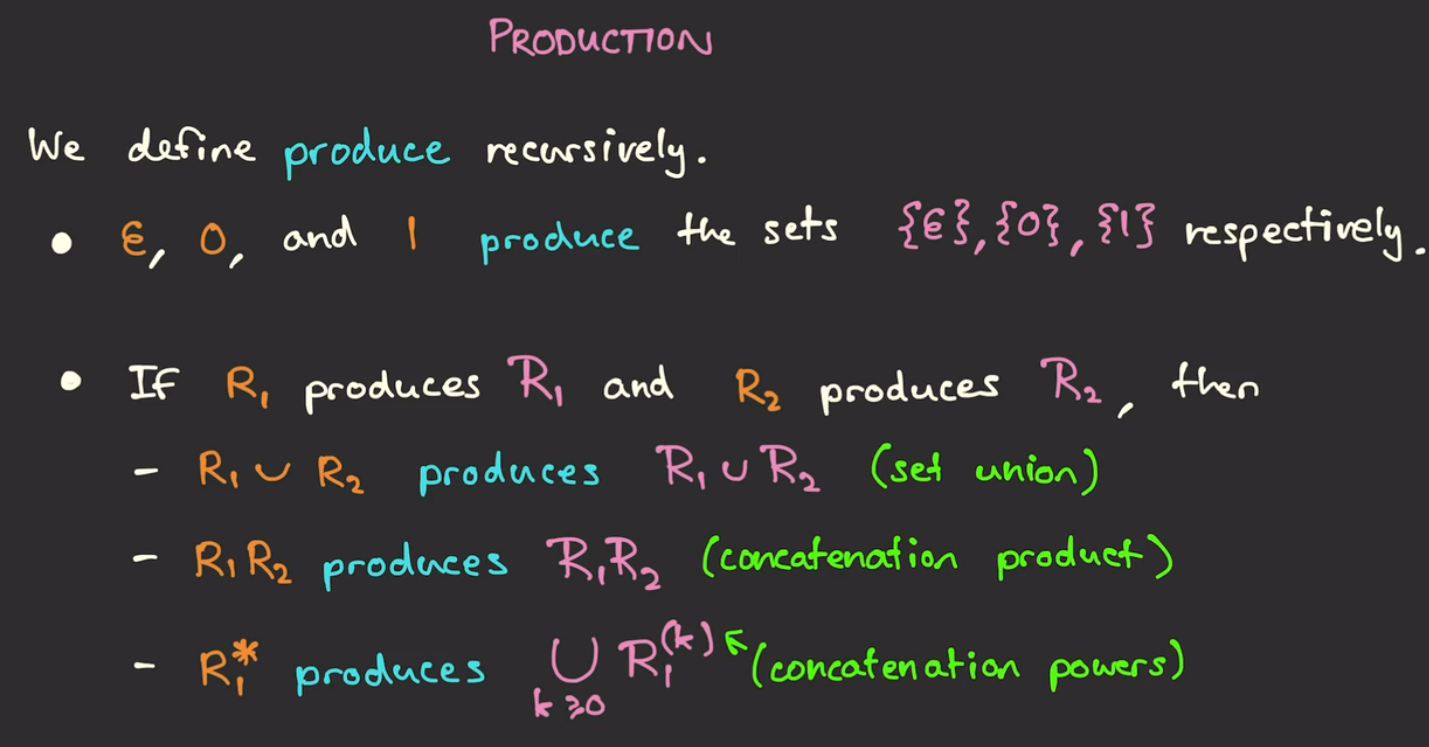 PRODUCTION
We define produce recursively.
• ε, 0, and 1 produce the sets {ε}, {0}, {1} respectively.
• If R₁ produces ℛ₁ and R₂ produces ℛ₂, then
- R₁ ∪ R₂ produces ℛ₁ ∪ ℛ₂ (set union)
- R₁R₂ produces ℛ₁ℛ₂ (concatenation product)
- R₁* produces ⋃_{k≥0} ℛ₁^{(k)} ↖ (concatenation powers)